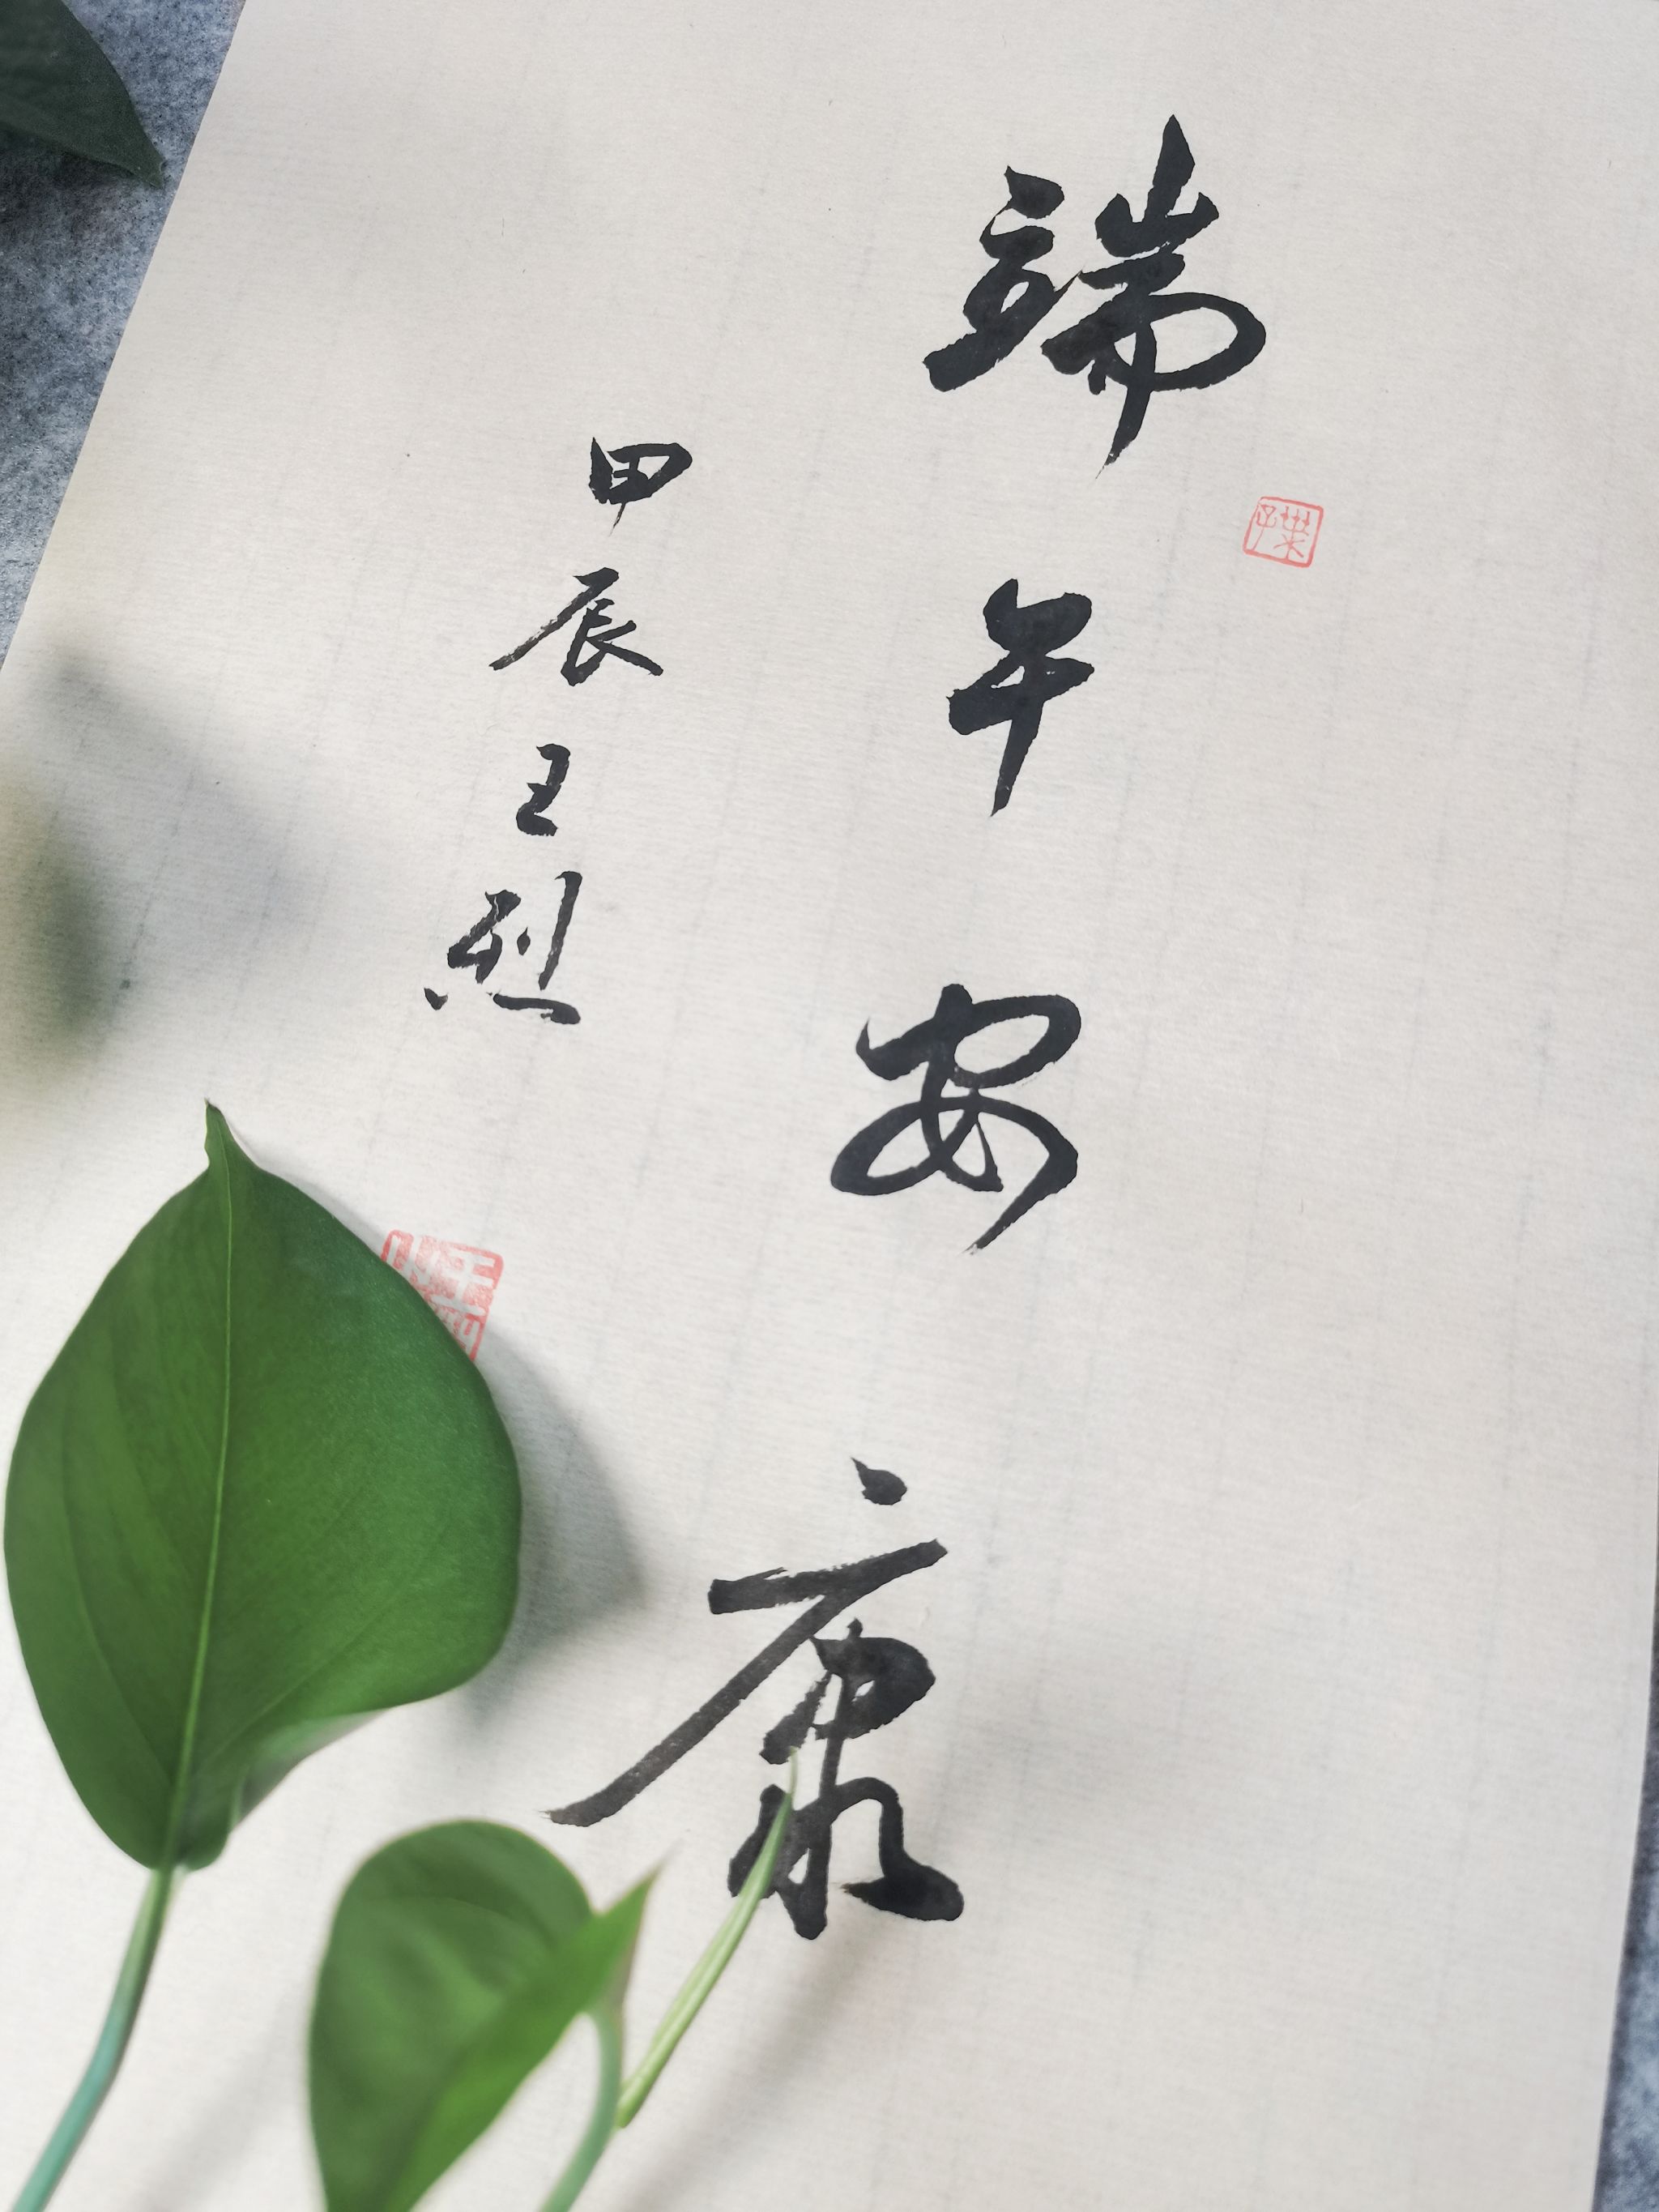 端午安康
甲辰王烈